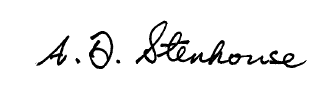 A. D. Stenhouse